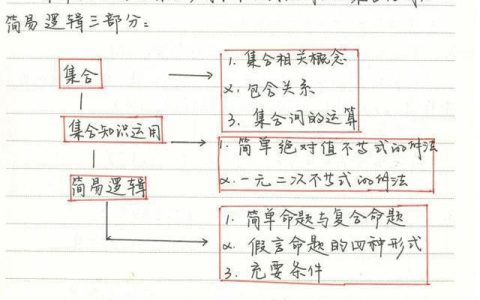 简易逻辑三部分：
集合
1. 集合相关概念
2. 包含关系
3. 集合间的运算
集合知识运用
1. 简单绝对值不等式的解法
2. 一元二次不等式的解法
简易逻辑
1. 简单命题与复合命题
2. 假言命题的四种形式
3. 充要条件